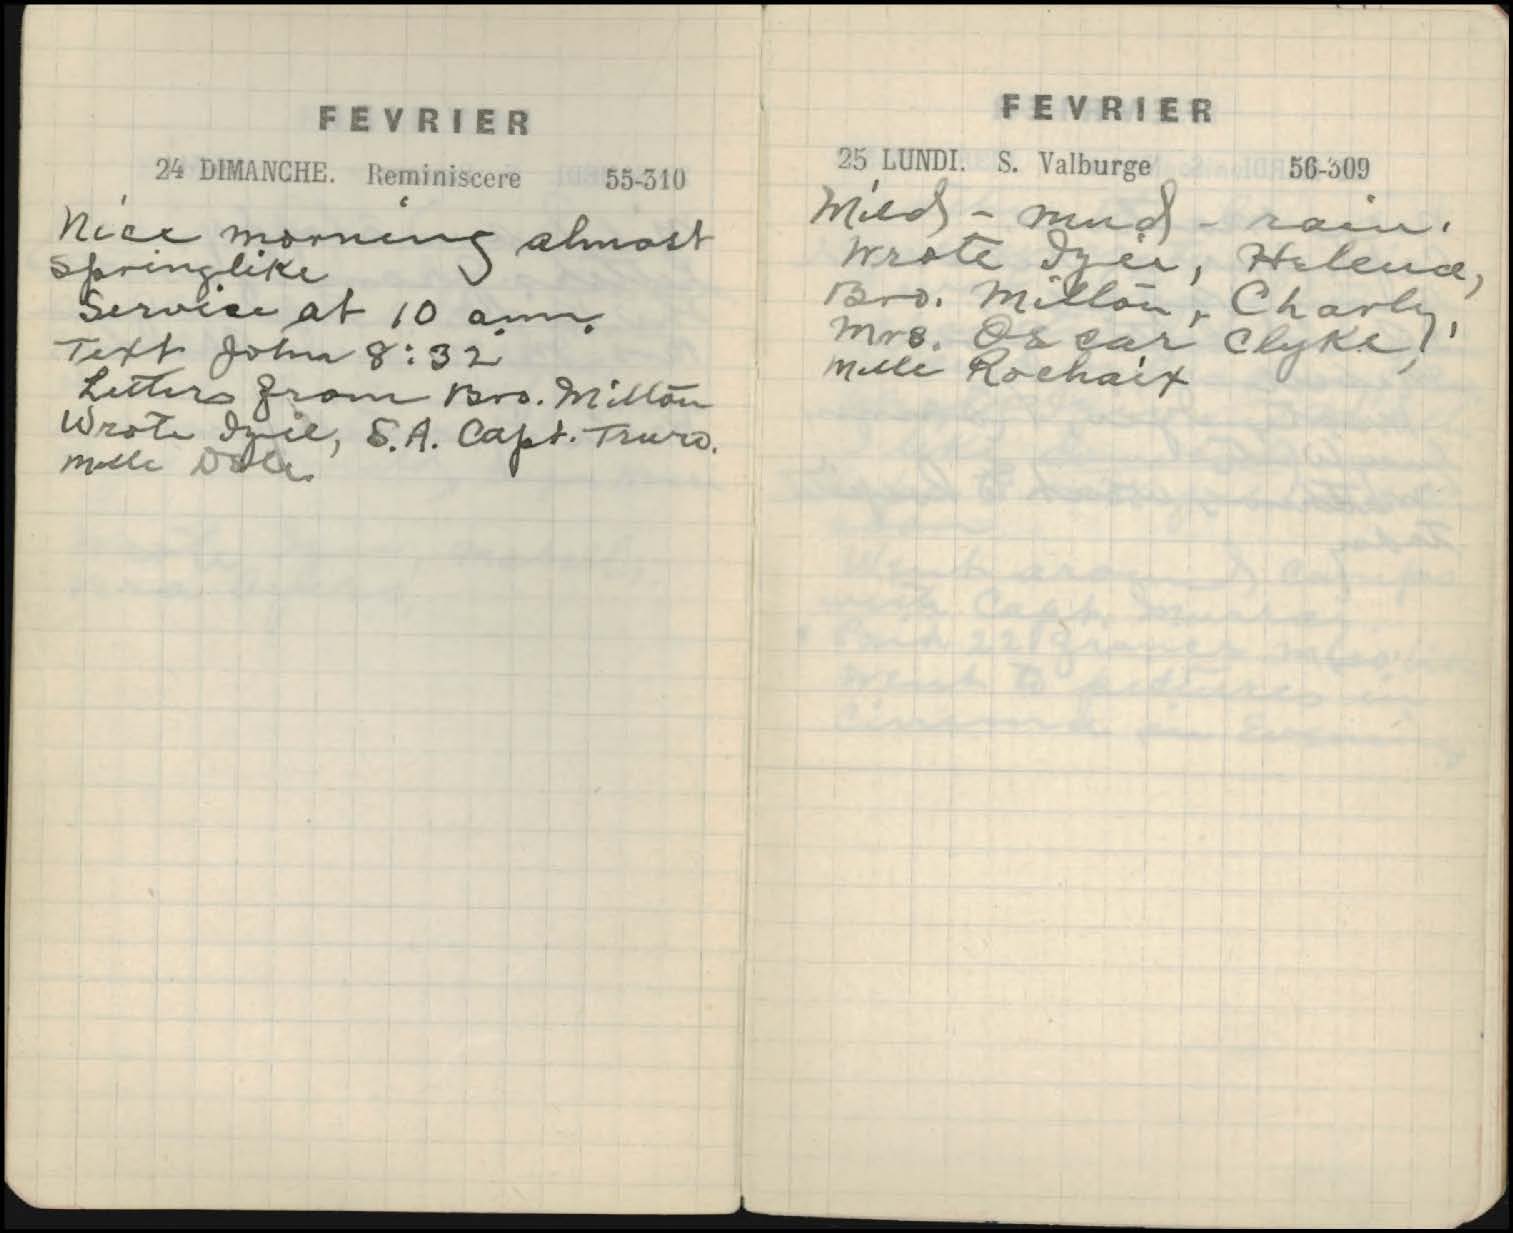 FEVRIER
24 DIMANCHE. Reminiscere 55-310
Nice morning almost
springlike
Service at 10 a.m.
Text John 8:32
Letters from Bro. Milton
Wrote Izie, S.A. Capt. Truro.
Mlle
FEVRIER
25 LUNDI. S. Valburge 56-309
Mild - mud - rain.
Wrote Izie, Helena,
Bro. Milton, Charly,
Mrs. Oscar Clyke,
Mlle Rochaix